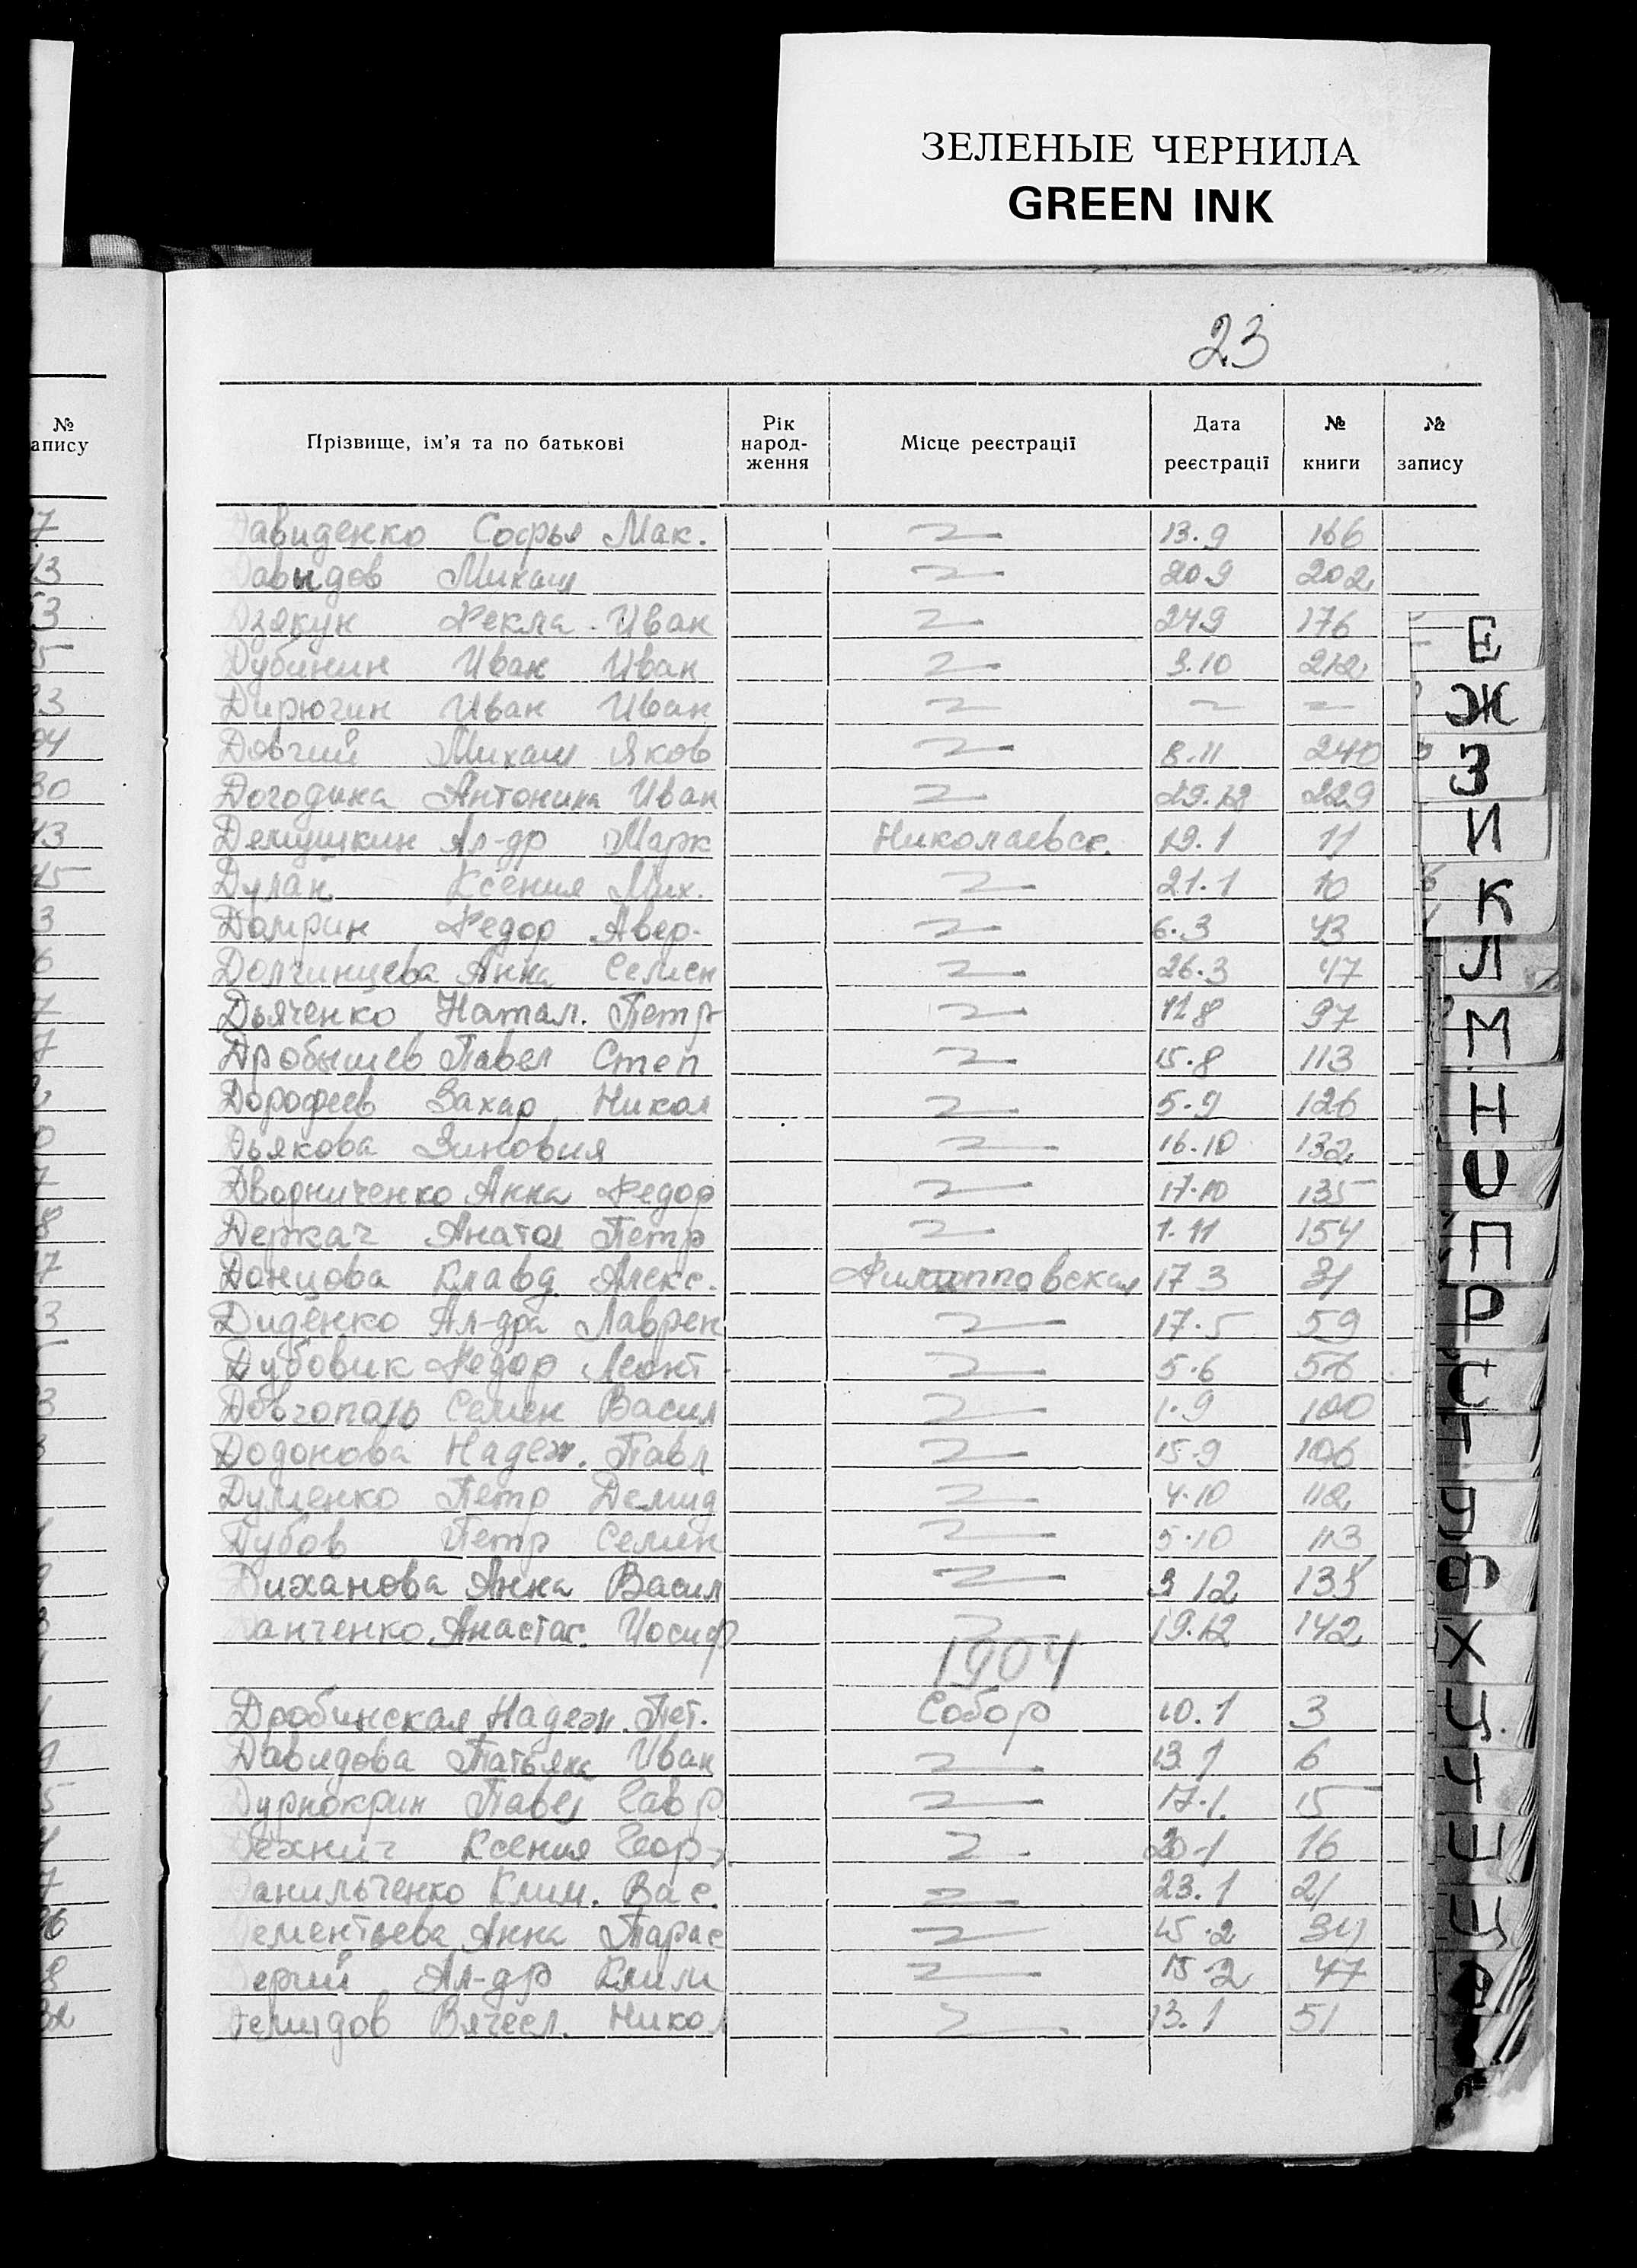 ЗЕЛЕНЫЕ ЧЕРНИЛА
GREEN INK
23
№ запису
Прізвище, ім'я та по батькові
Рік народ-ження
Місце реєстрації
Дата реєстрації
№ книги
№ запису
Давиденко Софья Мак. 13.9 166
Давыдов Михаил 20 9 202
Дзякун Фекла Иван 24 9 176
Дубинин Иван Иван 3.10 212
Дирючин Иван Иван
Довчий Михаил Яков 8.11 240
Догодина Антонина Иван 29.12 229
Демушкин Ал-др Марк Николаевск. 19.1 11
Дулан Ксения Мих. 21.1 10
Домрин Федор Авер. 6.3 43
Долчинцева Анна Семен 26.3 47
Дьяченко Натал. Петр 11 8 97
Дробышев Павел Степ 15.8 113
Дорофеев Захар Никол 5.9 126
Дьякова Зиновия 16.10 132
Дворниченко Анна Федор 17.10 135
Держач Анатол Петр 1.11 154
Донцова Клавд. Алекс. Филипповская 17 3 31
Диденко Ал-дра Лаврен 17.5 59
Дубовик Федор Леонт 5.6 56
Довгополь Семен Васил 1.9 100
Додонова Надеж. Павл 15.9 106
Дущенко Петр Демид 4.10 112
Дубов Петр Семен 5.10 113
Диханова Анна Васил 3 12 135
Данченко Анастас. Иосиф 19.12 142
1904
Дробинская Надеж. Пет. Собор 10.1 3
Давидова Татьяна Иван 13 1 6
Дурнокрин Павел Гавр 17.1. 15
Дехнич Ксения Георг. 20.1 16
Данильченко Клим. Вас. 23.1 21
Дементьева Анна Тарас 15.2 34
Дергий Ал-др Клим 15 2 47
Демидов Вячесл. Никол 13.1 51
Е
Ж
З
И
К
Л
М
Н
О
П
Р
С
Т
У
Ф
Х
Ц
Ч
Ш
Щ